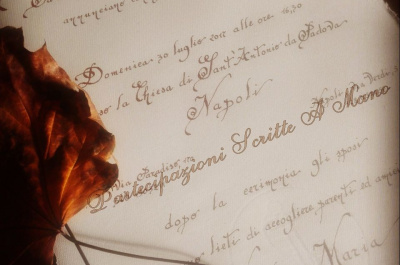 annunciano
Domenica 30 luglio 2012 alle ore
la Chiesa di Sant'Antonio da Padova
Napoli
Partecipazioni Scritte A Mano
dopo la cerimonia gli sposi
lieti di accogliere parenti ed
Maria